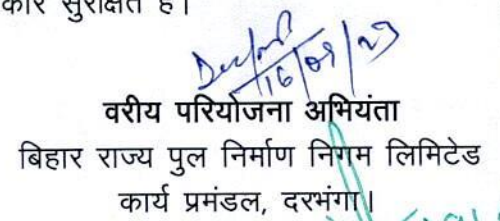 कार सुरक्षित है।
16/09/23
वरीय परियोजना अभियंता
बिहार राज्य पुल निर्माण निगम लिमिटेड
कार्य प्रमंडल, दरभंगा।